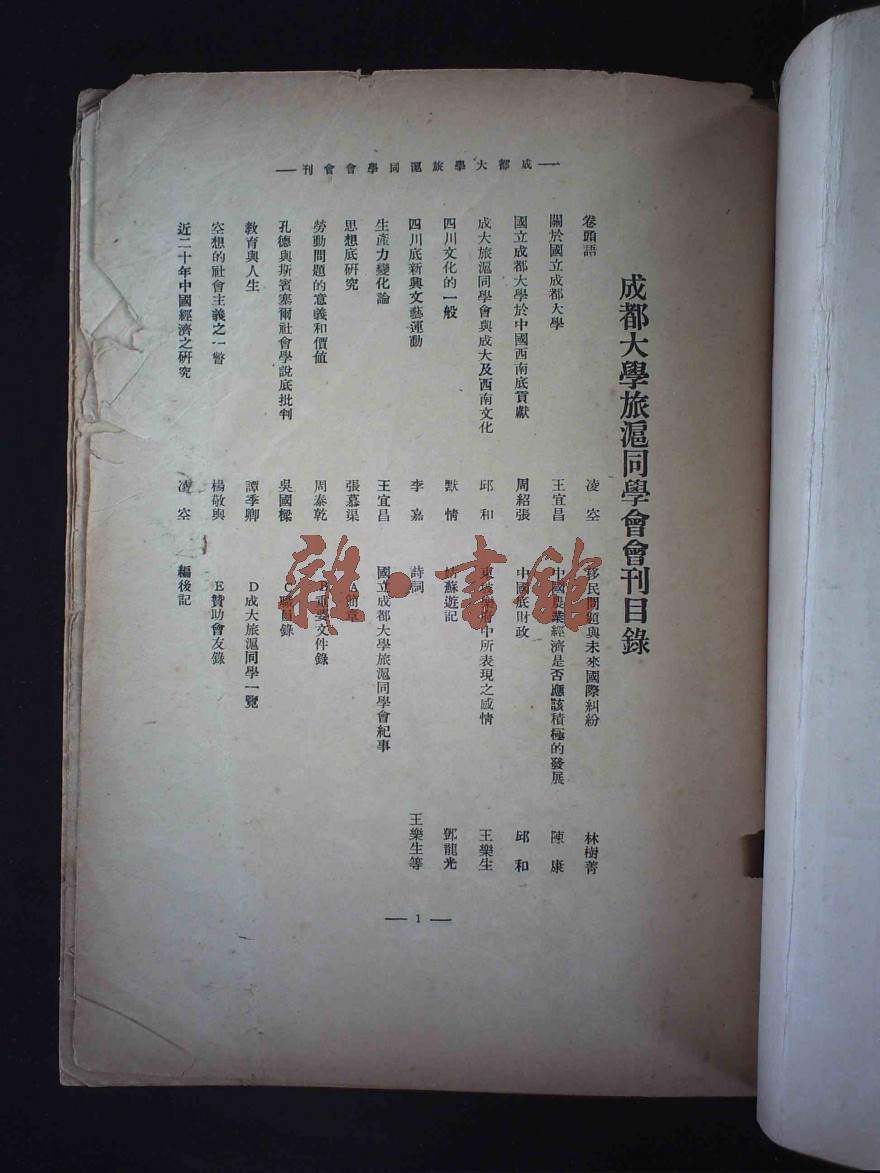 成都大學旅滬同學會會刊
成都大學旅滬同學會會刊目錄
卷頭語 凌空
關於國立成都大學 王宜昌
國立成都大學於中國西南底貢獻 周紹張
成大旅滬同學會與成大及西南文化 邱和
四川文化的一般 默情
四川底新興文藝運動 李嘉
生產力變化論 王宜昌
思想底研究 張慕渠
勞動問題的意義和價値 周泰乾
孔德與斯賓塞爾社會學說底批判 吳國樑
教育與人生 譚季卿
空想的社會主義之一瞥 楊敬與
近二十年中國經濟之研究 凌空
移民問題與未來國際糾紛 林樹菁
中國農業經濟是否應該積極的發展 陳康
中國底財政 邱和
東坡 中所表現之感情 王樂生
姑蘇遊記 鄧龍光
詩詞 王樂生等
國立成都大學旅滬同學會紀事
A簡章
B重要文件錄
C職員錄
D成大旅滬同學一覽
E贊助會友錄
編後記
1
雜·書館